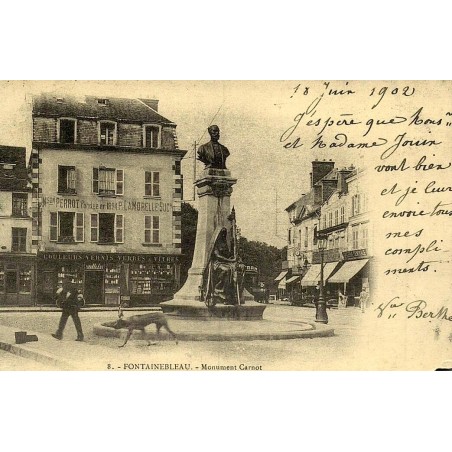 18 Juin 1902
J'espère que Mons.r
et Madame Jouin
vont bien
et je leur
envoie tous
mes
compli
ments.
Vve Berthe
Mon PERROT FONDÉE EN 1808 P. LAMBRELLE SUCr
COULEURS VERNIS VERRES & VITRES
8. - FONTAINEBLEAU. - Monument Carnot